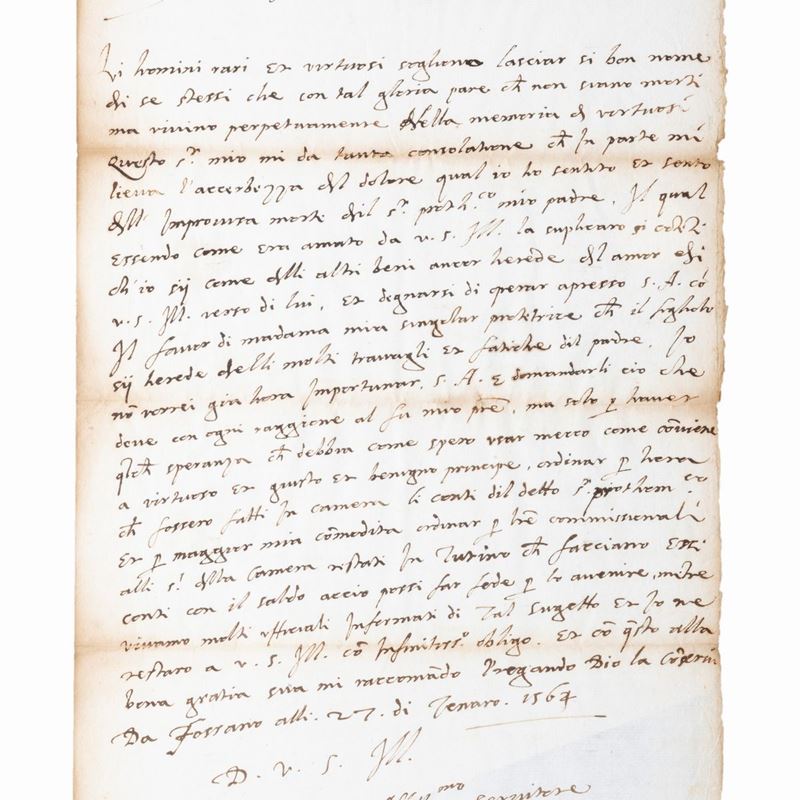 Li homini rari et virtuosi sogliono lasciar si bon nome
di se stessi che con tal gloria pare ch non siano morti
ma vivino perpetuamente della memoria di vertuosi
Questo s.r mio mi da tanta consolatione ch in parte mi
lieva l'accerbezza del dolore qual io ho sentito et sento
dell' Improvisa morte dil s.r proth.co mio padre, Il qual
Essendo come era amato da v. s. Ill. la suplicaro si
ch' io sij come delli altri beni ancor herede del amor di
v. s. Ill. verso di lui, et degnarsi di operar apresso s. A. cō
Il favor di madama mia singolar protetrice ch il figliolo
sij herede delli molti travagli et fatiche dil padre. Io
nō vorrei gia hora Importunar. s. A. e domandarli cio che
deve con ogni raggione al fu mio pre, ma solo p haver
speranza ch debbia come spero usar mecco come conviene
a virtuoso et giusto et benigno principe, ordinar p hora
ch fossero fatti In camera li conti dil detto s.r prothom.co
Et p maggior mia cōmodita ordinar p lre commissionali
alli s.ri della camera restati In Turino ch facciano
conti con il saldo accio possi far fede p lo avenire, mētre
vivano molti officiali Informati di Tal sugetto et Io ne
restaro a v. s. Ill. cō Infinitiss.o obligo. Et cō qsto alla
bona gratia sua mi raccomādo Pregando Dio la
Da Fossano alli. 27. di Jenaro. 1564
D. v. s. Ill.
servitore